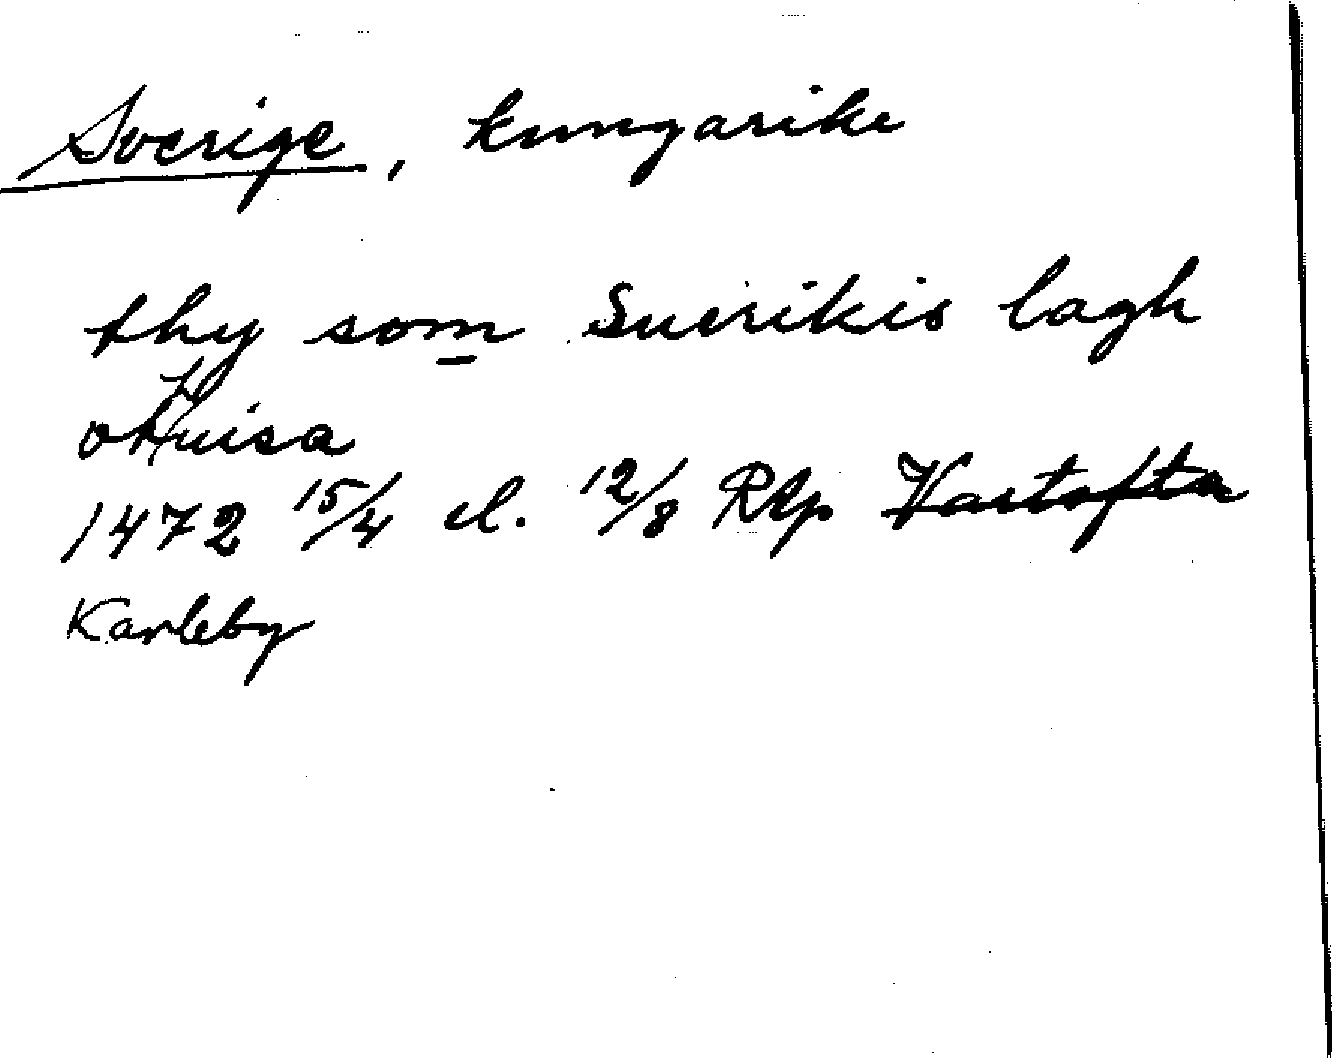 Sverige, kungarike
thy som Suerikis lagh
vthuisa
1472 15/4 el. 12/8 Rlp Vartofta
Karleby